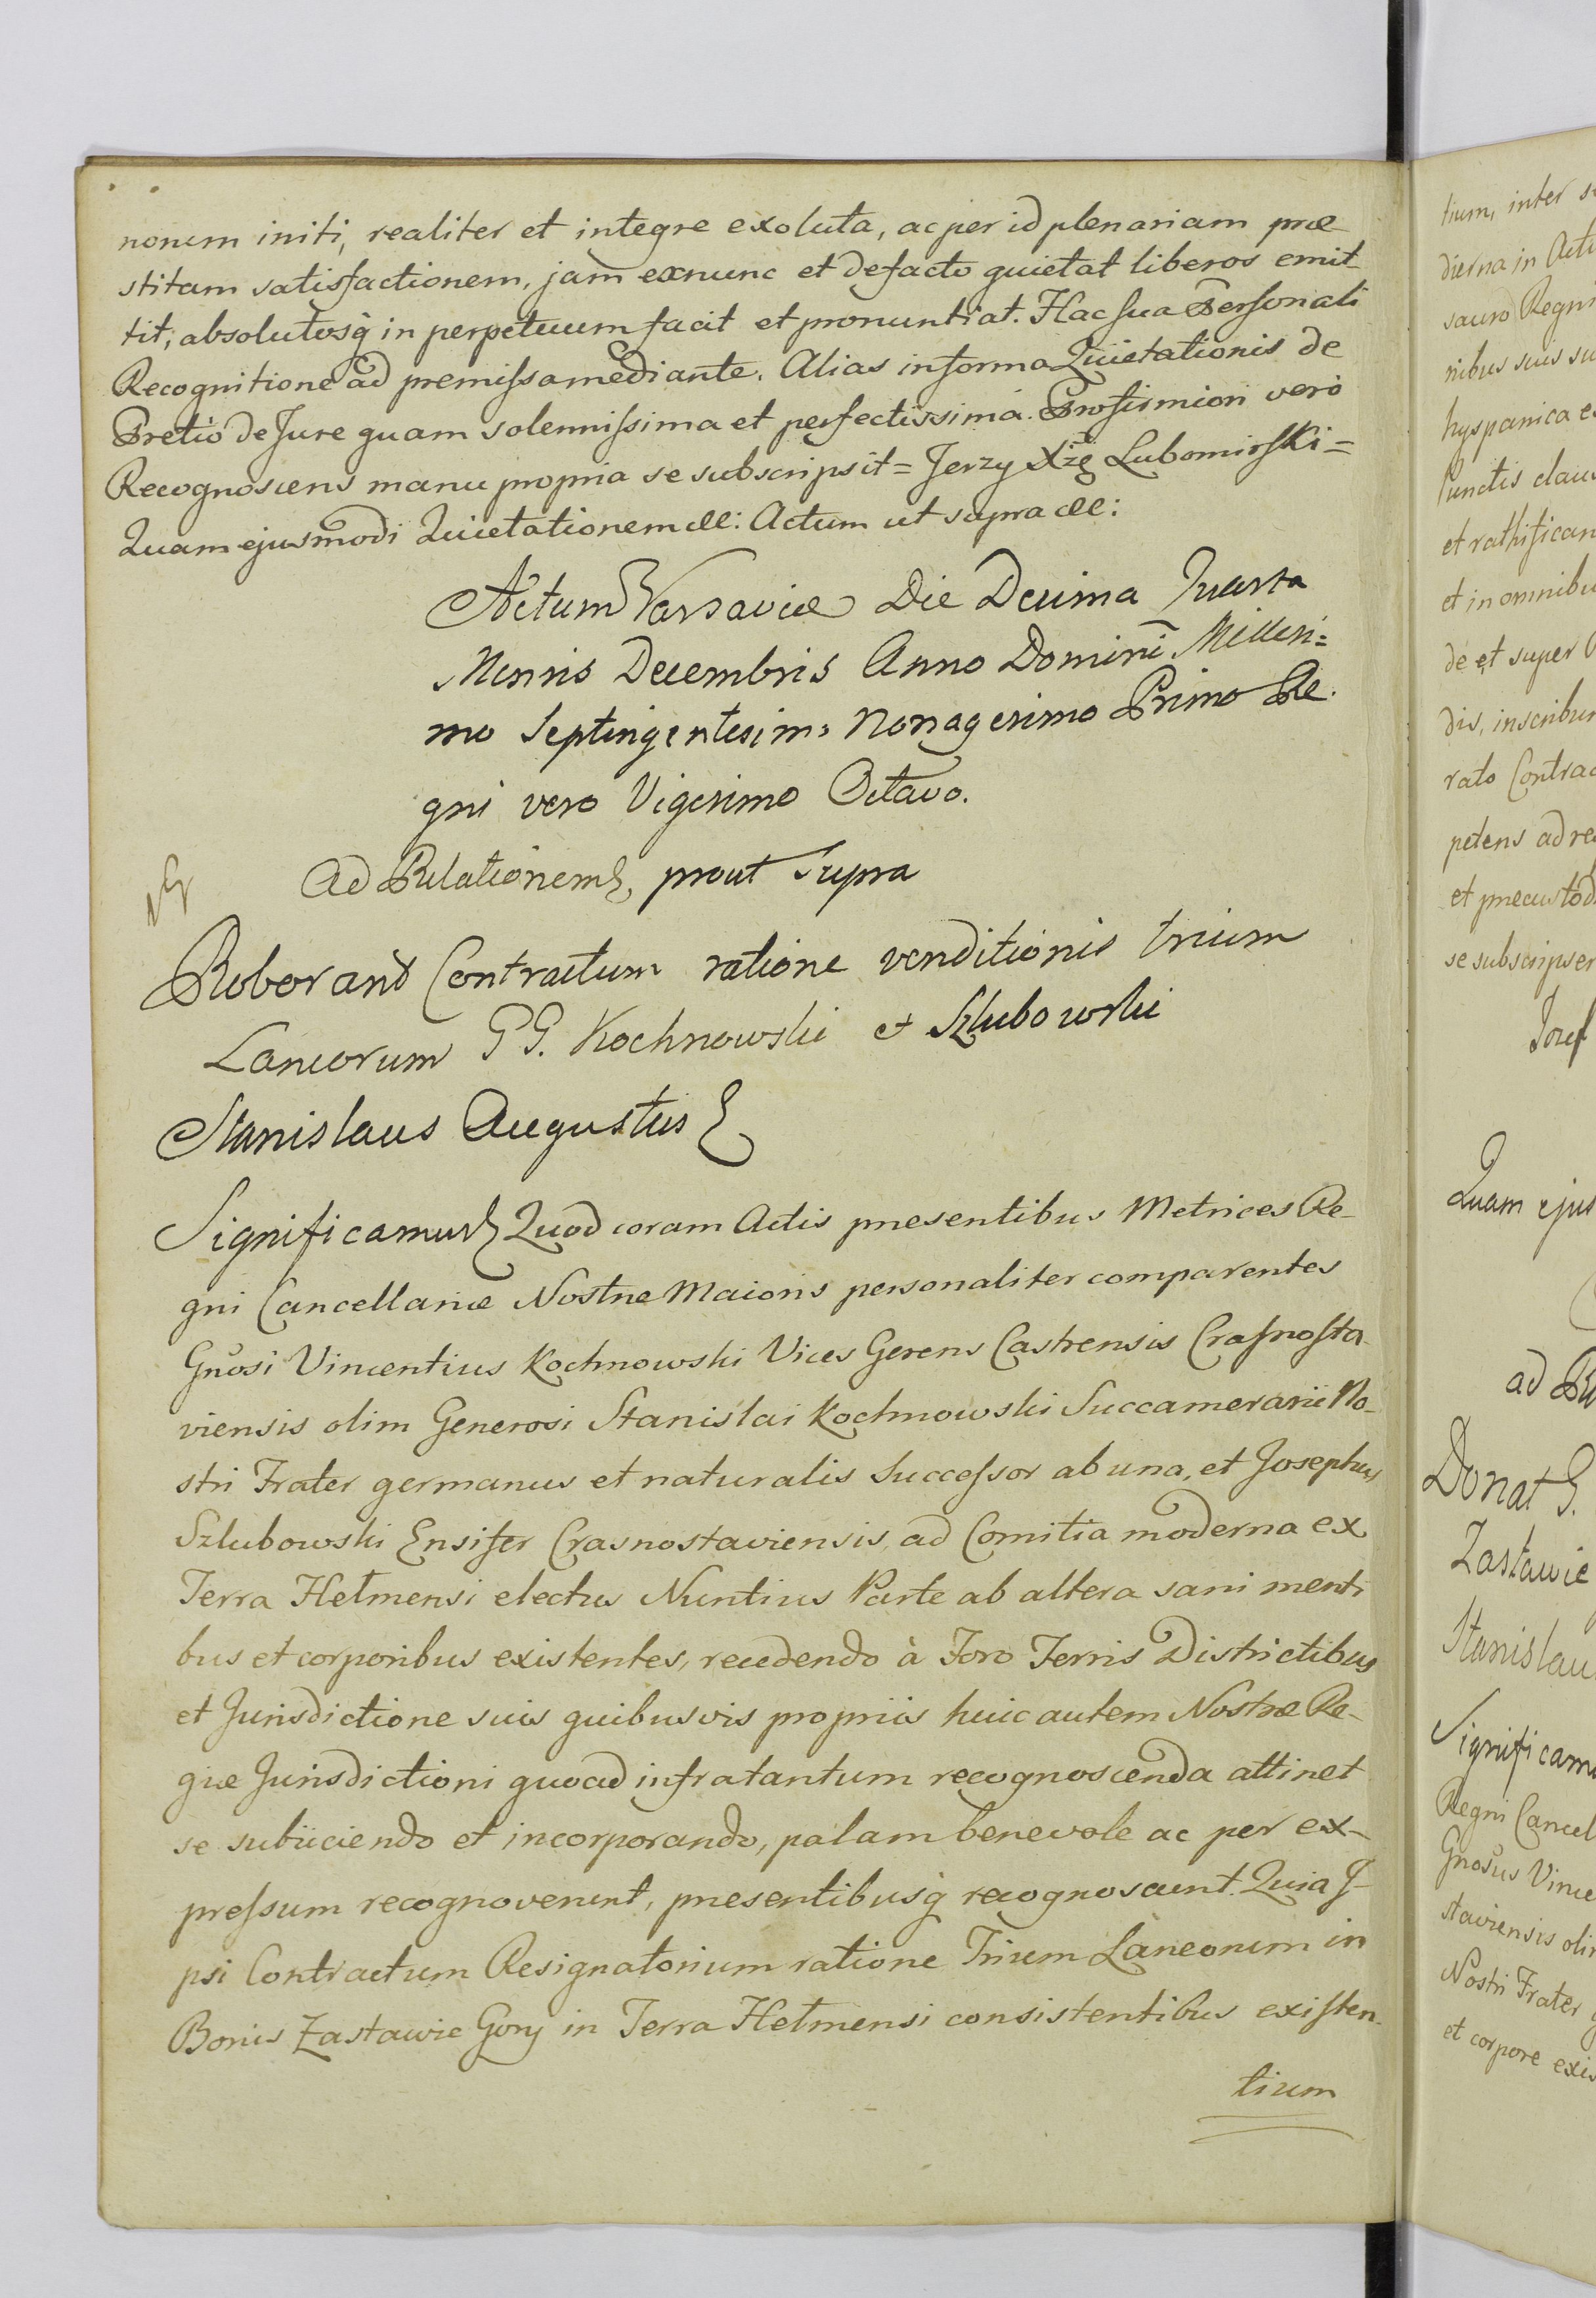 norum initi, realiter et integre exoluta, ac per id plenariam præ-
stitam satisfactionem, jam exnunc et defacto quietat liberos emit-
tit, absolutosq̃ in perpetuum facit et pronuntiat. Hac sua Personali
Recognitione ad premissa mediante. Alias in forma Quietationis de
Pretio de Jure quam solennissima et perfectissima. Pro firmiori vero
Recognoscens manu propria se subscripsit = Jerzy Xżę Lubomirski =
Quam ejusmodi Quietationem &&: Actum ut supra &&:
Actum Varsaviæ Die Decima Quarta
Mensis Decembris Anno Domini Millesi=
mo Septingentesimo Nonagesimo Primo Re-
gni vero Vigesimo Octavo.
Ad Relationem prout Supra
Roborant Contractum ratione venditionis trium
Laneorum GG. Kochnowski et Szlubowski
Stanislaus Augustus
Significamus Quod coram Actis presentibus Metrices Re-
gni Cancellariæ Nostræ Maioris personaliter comparentes
Gnosi Vincentius Kochnowski Vices Gerens Castrensis Crasnosta-
viensis olim Generosi Stanislai Kochnowski Succamerarii No-
stri Frater germanus et naturalis Successor ab una, et Josephus
Szlubowski Ensifer Crasnostaviensis, ad Comitia moderna ex
Terra Hełmensi electus Nuntius Parte ab altera sani menti
bus et corporibus existentes, recedendo à Foro Terris Districtibus
et Jurisdictione suis quibusvis propriis huic autem Nostræ Re-
giæ Jurisdictioni quoad infratantum recognoscenda attinet
se subiiciendo et incorporando, palam benevole ac per ex-
pressum recognoverunt, presentibusq̃ recognoscunt. Quia J-
psi Contractum Resignatorium ratione Trium Laneorum in
Bonis Zastawie Gory in Terra Hełmensi consistentibus existen-
tium
tium, inter
dierna in
sauro Regni
nibus suis
hyspanica
Punctis
et rathifican
et in omnibu
de et super
dis, inscribun
rato Contrac
petens ad
et precustod
se subscripser
Jozef
Quam ejus
ad
Donat G.
Zastawie
Stanislau
Significamu
Regni Cancel
Gnosus Vince
staviensis oli
Nostri Frater
et corpore exis